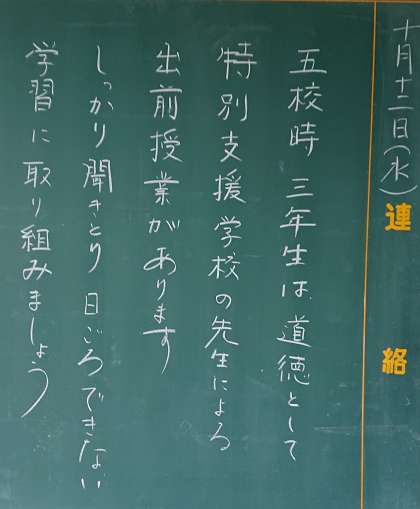 十月十二日(水)
連絡
五校時 三年生は、道徳として
特別支援学校の先生による
出前授業があります
しっかり聞きとり 日ごろできない
学習に取り組みましょう